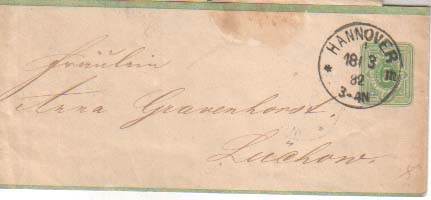 HANNOVER
18/3
III
82
3-4N
Fräulein
Anna Gravenhorst.
Lüchow.